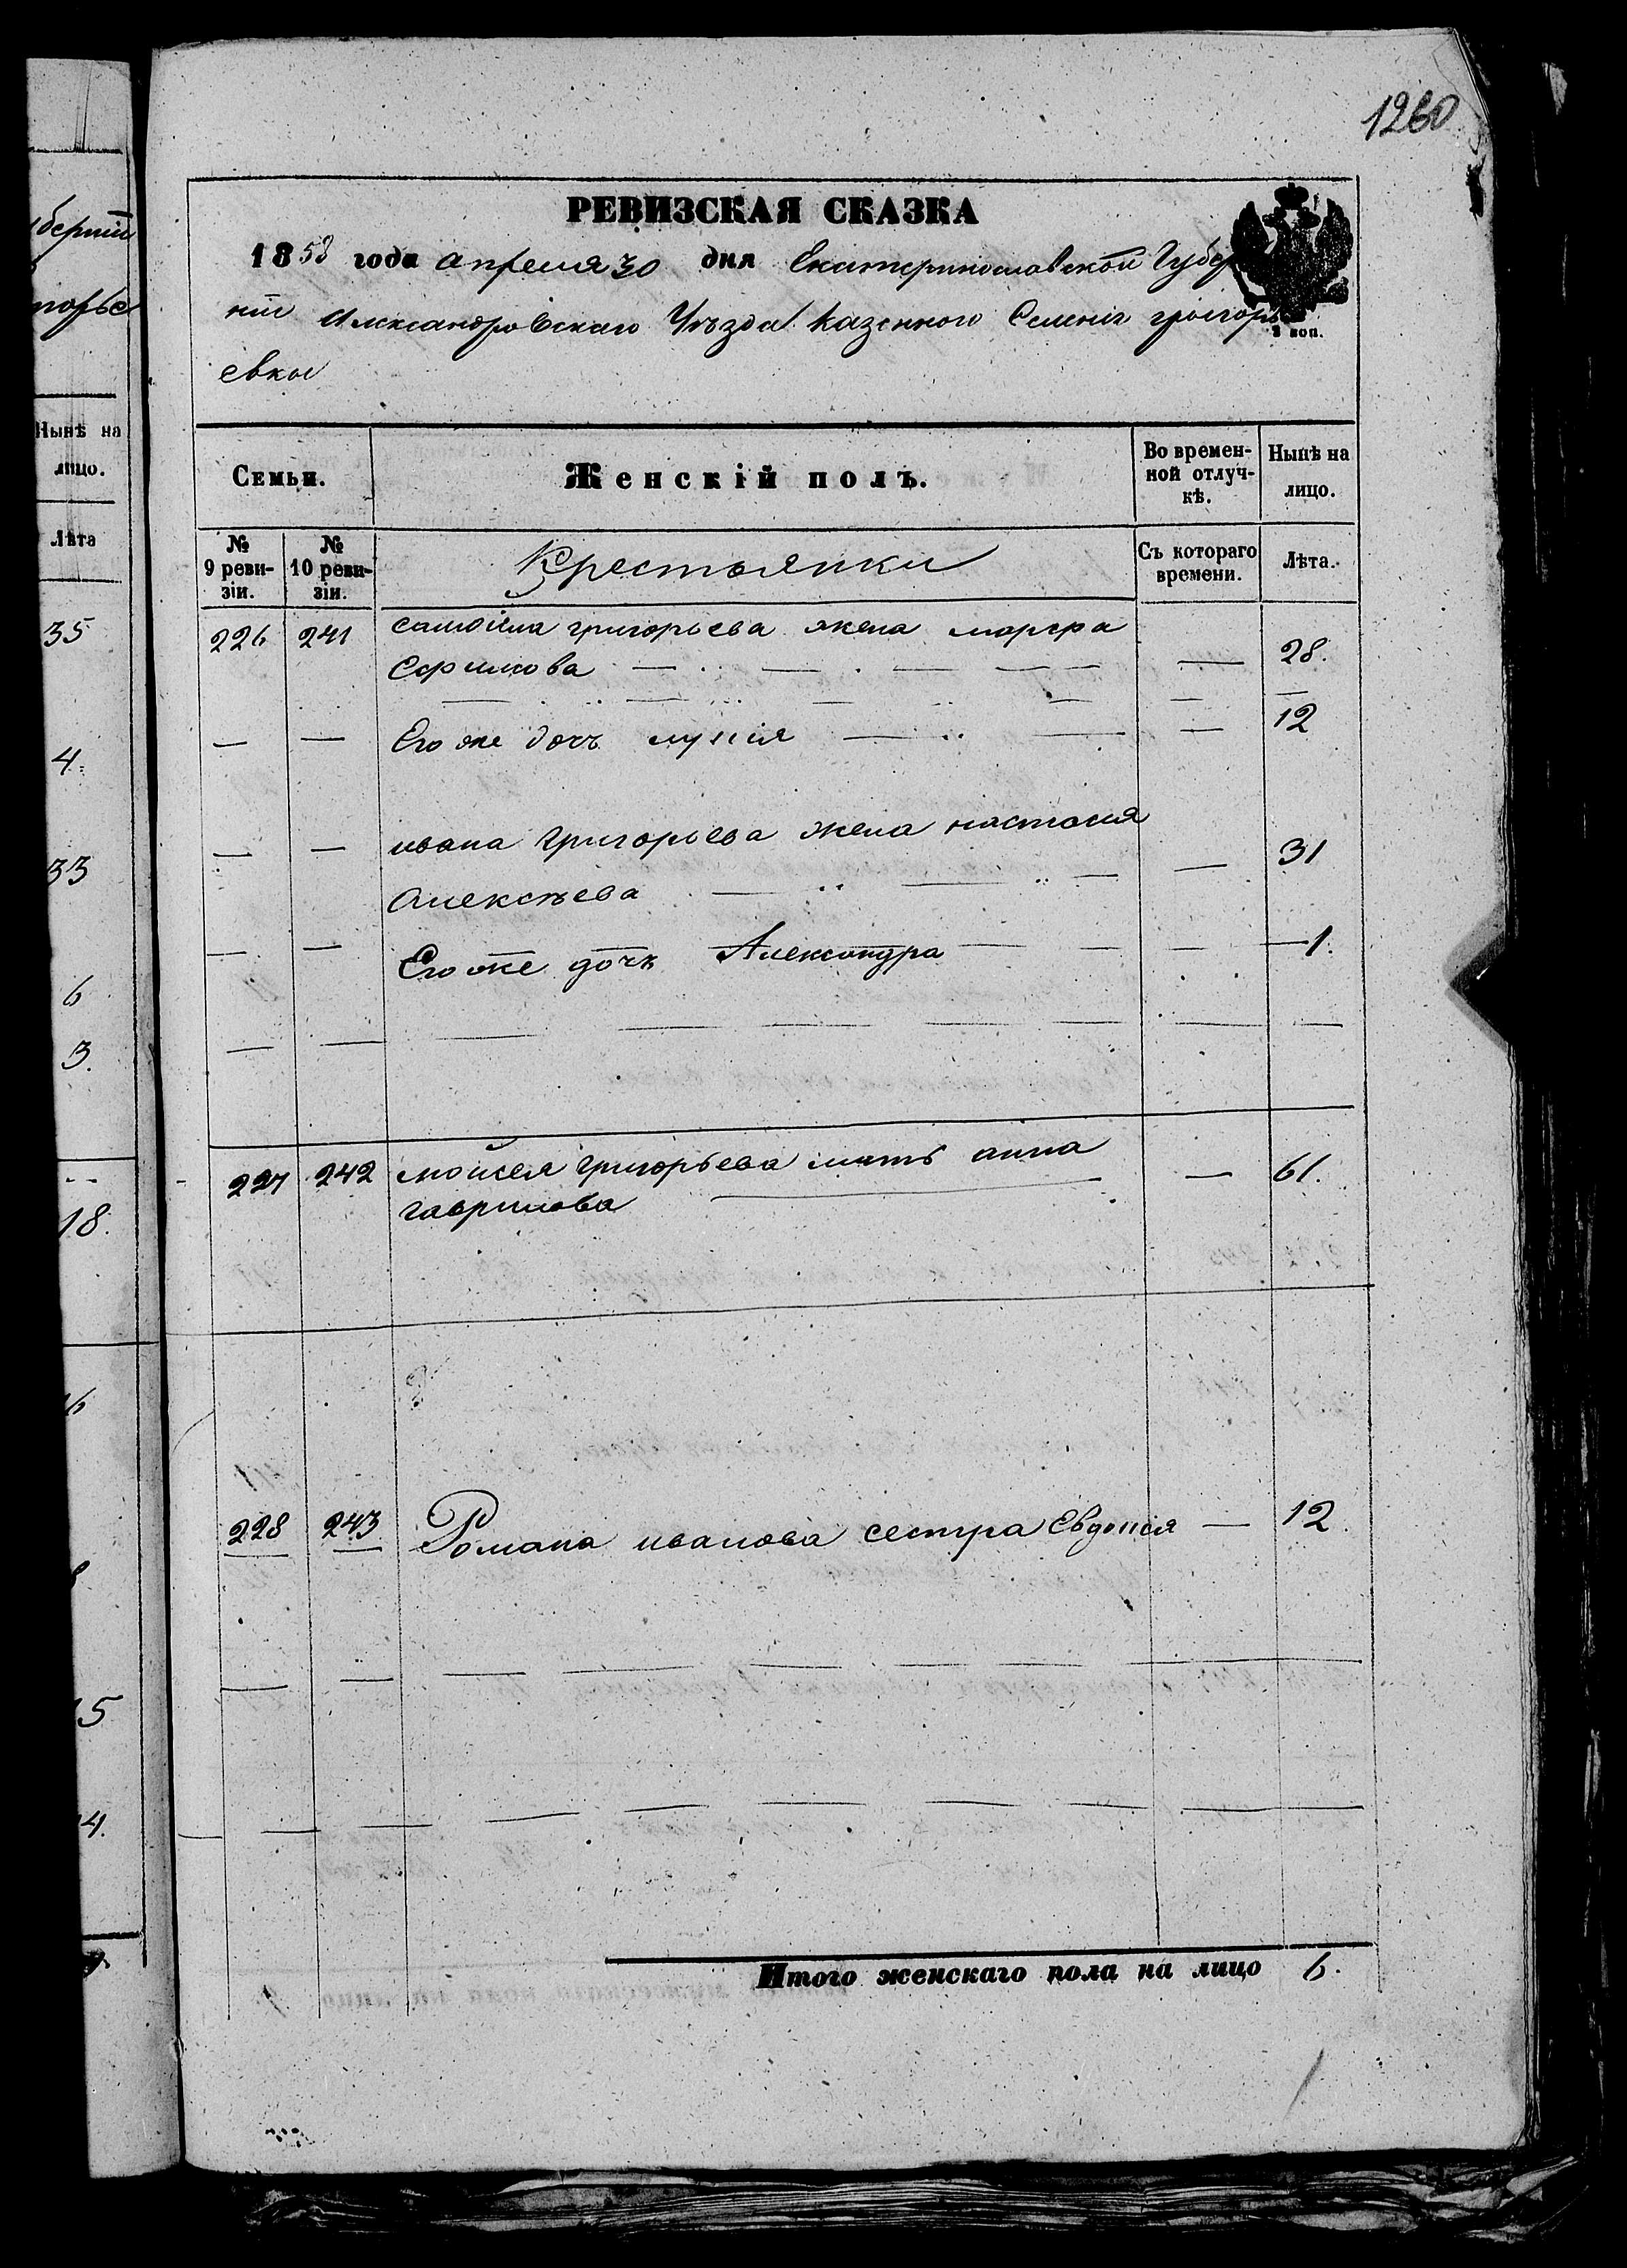 1260
РЕВИЗСКАЯ СКАЗКА
1858 года апреля 30 дня Екатеринославской Губер
нiи Александровскаго Уѣзда Казенного Селенiя григорь
евки
3 коп.
Семьи.
Женскiй полъ.
Во времен-
ной отлуч-
кѣ.
Нынѣ на
лицо.
№
9 реви-
зiи.
№
10 реви-
зiи.
Крестьянки
Съ котораго
времени.
Лѣта.
226 241 самойла григорьева жена марфа
Ефимова — — — — — 28.
— — Его же дочь лукiя — — — 12
— — ивана григорьева жена настасия
Алексѣева — — — — 31
— — Его же дочь Александра — — — 1
227 242 моисея григорьева мать анна — 61.
гаврилова
228 243 Романа иванова сестра Евдокия — 12
Итого женскаго пола на лицо 6.
берніи
горье
Нынѣ на
лицо.
Лѣта
35
4.
33
6
3.
18.
6
15
14.